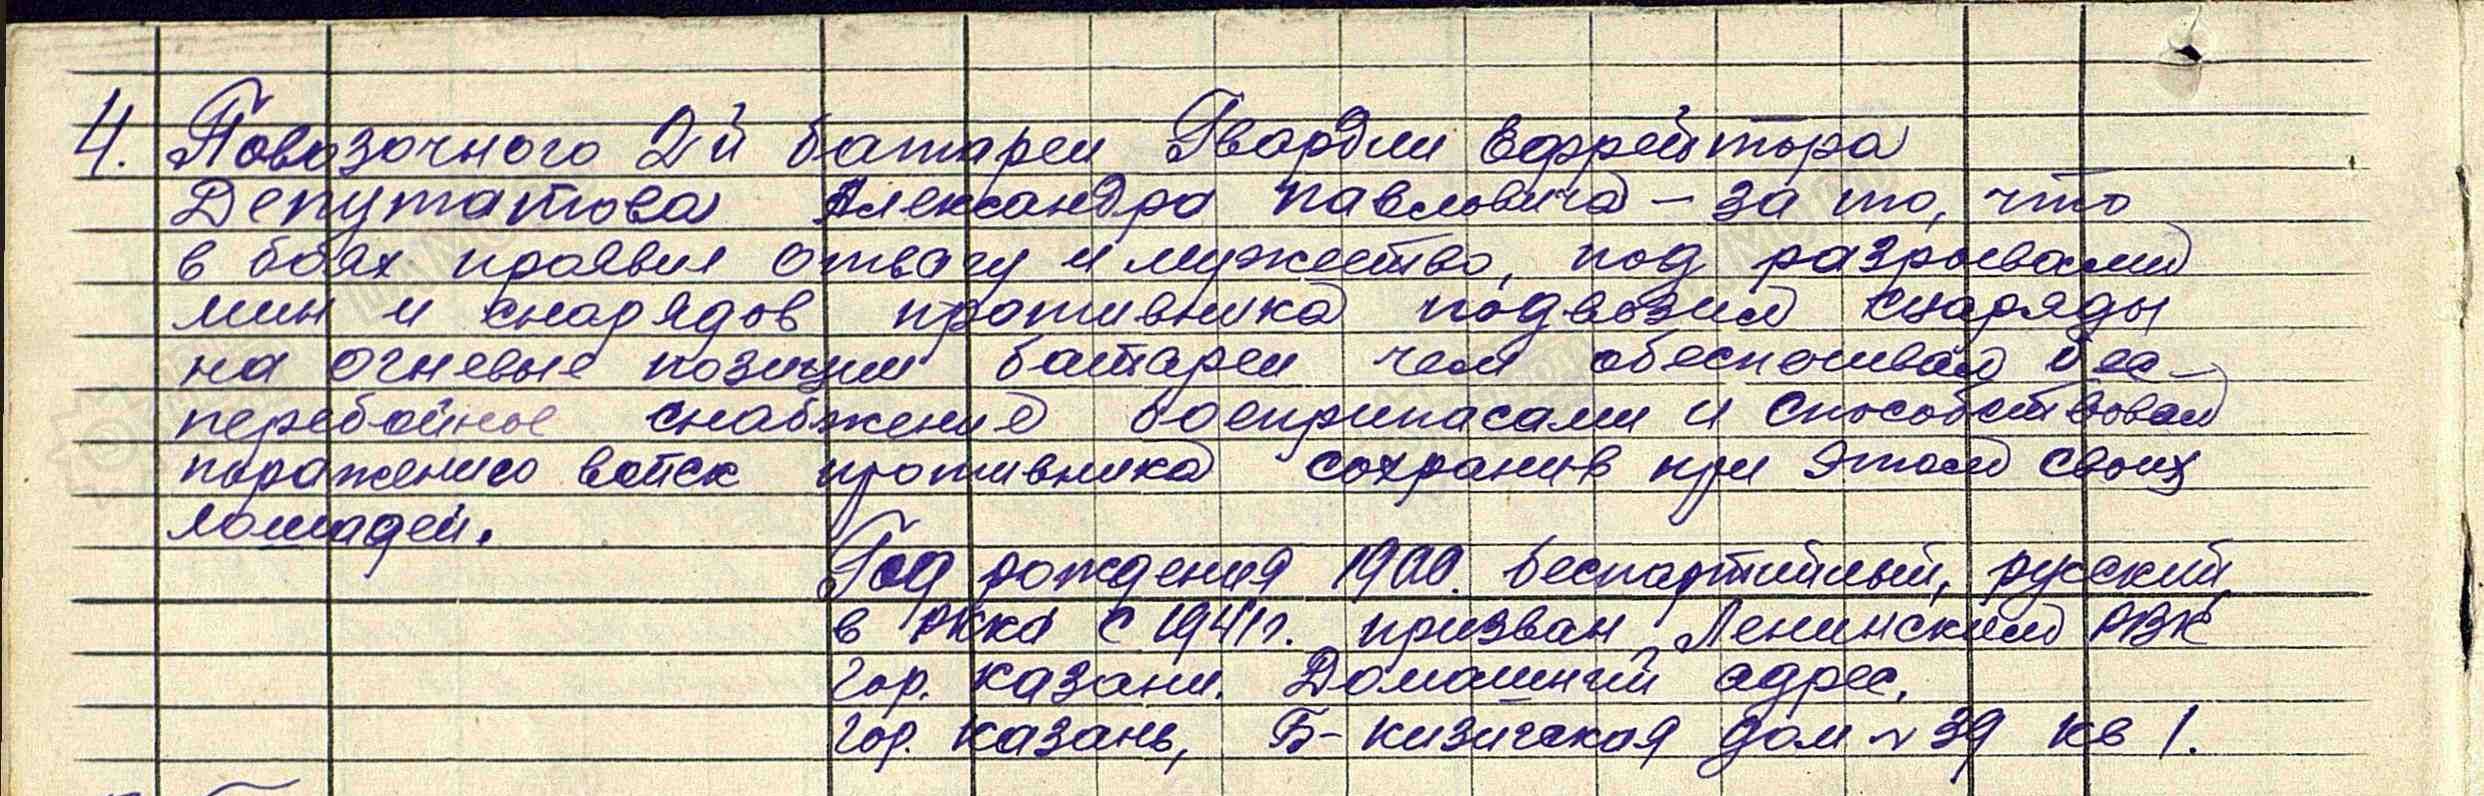 4. Повозочного 2й батареи Гвардии Ефрейтора
Депутатова Александра Павловича – за то, что
в боях проявил отвагу и мужество, под разрывами
мин и снарядов противника подвозил снаряды
на огневые позиции батареи чем обеспечивал бес-
перебойное снабжение боеприпасами и способствовал
поражению войск противника сохранив при этом своих
лошадей.
Год рождения 1900. беспартийный, русский
в РККА с 1941г. призван Ленинским РВК
гор. Казани. Домашний адрес.
гор. Казань, Б-Кизическая дом № 39 кв 1.